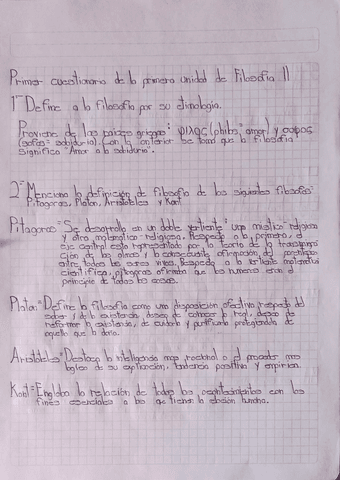 Primer cuestionario de la primera unidad de Filosofía II
1- Define a la filosofía por su etimología.
Proviene de las raíces griegas: φιλος (philos= amor) y σοφος
(sofos= sabiduría). Con lo anterior se basa que la filosofía
significa "Amor a la sabiduría".
2- Menciona la definición de filosofía de los siguientes filósofos:
Pitagoras, Platon, Aristoteles y Kant
Pitagoras= Se desarrolla en un doble vertiente: una mistico-religiosa
y otra matematico-religiosa. Respecto a la primera, el
eje central esta representado por la teoria de la transmigra
ción de las almas y la consecuente afirmación del parentesco
entre todos los seres vivos. Respecto a la vertiente matematico
cientifica, pitagoras afirmaba que los numeros eran el
principio de todas las cosas.
Platon= Define la filosofía como una disposición afectiva respecto del
saber / de lo existente, deseo de conocer lo real, deseo de
reformar lo existente, de cuidarlo y purificarlo protegiendola de
aquello que la daña.
Aristoteles= Destaca la inteligencia mas racional o el proceder mas
logico de su explicación, tendencia positiva y empirica.
Kant= Engloba la relación de todos los conocimientos con los
fines esenciales a los que tienen la razón humana.